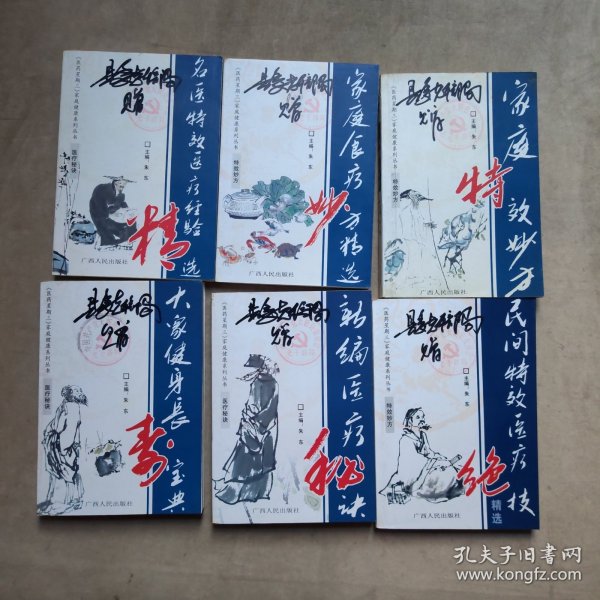 《医药星期三》家庭健康系列丛书
医疗秘诀
名医特效医疗经验精选
□主编 朱东
广西人民出版社
《医药星期三》家庭健康系列丛书
特效妙方
家庭食疗妙方精选
□主编 朱东
广西人民出版社
《医药星期三》家庭健康系列丛书
特效妙方
家庭特效妙方
□主编 朱东
广西人民出版社
《医药星期三》家庭健康系列丛书
医疗秘诀
大众健身长寿宝典
□主编 朱东
广西人民出版社
《医药星期三》家庭健康系列丛书
医疗秘诀
新编医疗秘诀
□主编 朱东
广西人民出版社
《医药星期三》家庭健康系列丛书
特效妙方
民间特效医疗绝技
精选
□主编 朱东
广西人民出版社
孔夫子旧书网
www.kongfz.com